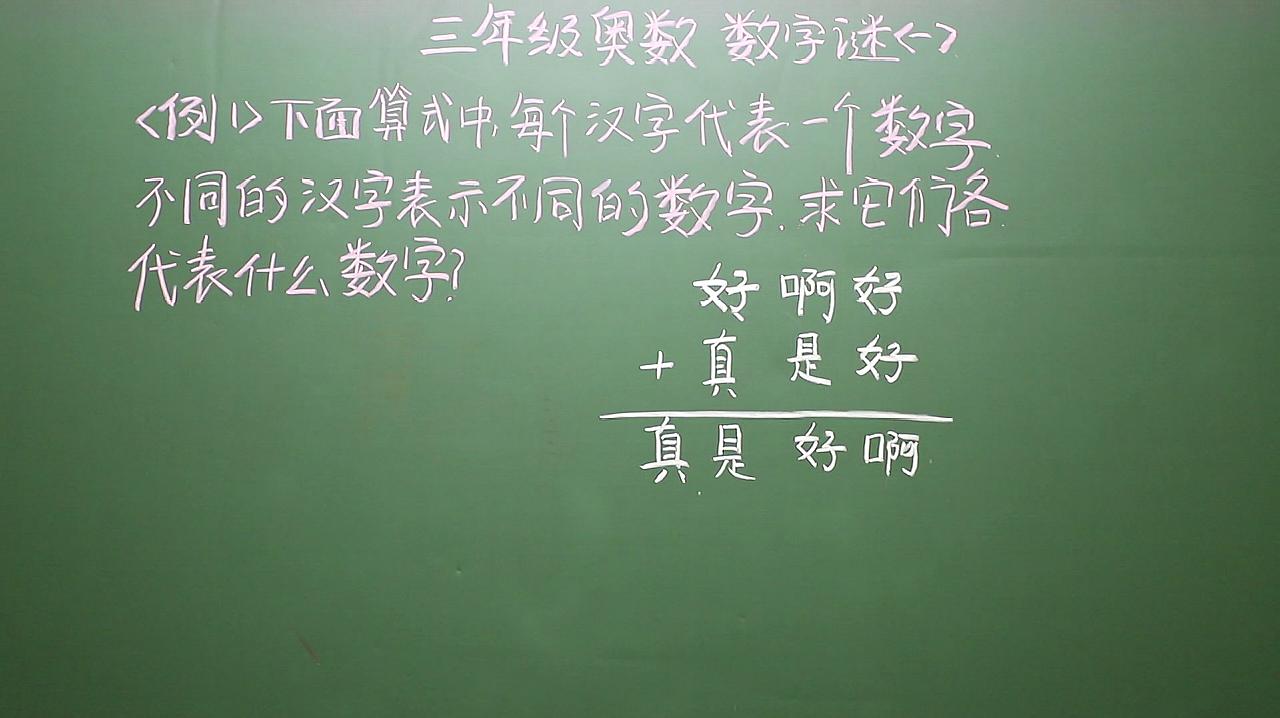 三年级奥数 数字谜<一>
<例1>下面算式中,每个汉字代表一个数字.
不同的汉字表示不同的数字.求它们各
代表什么数字?
好 啊 好
+ 真 是 好
真 是 好 啊